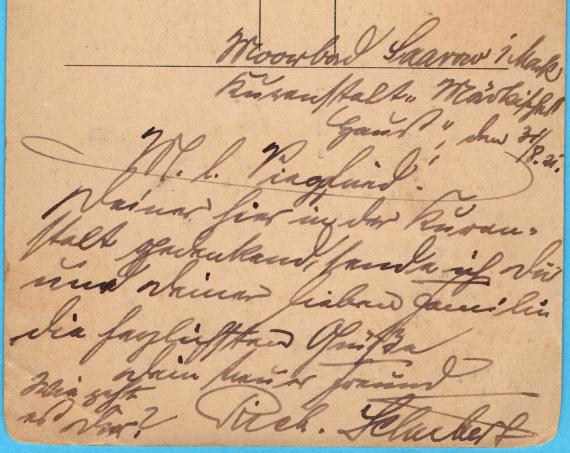 Moorbad Saarow i/Mark
Kuranstalt „Märkisches
Haus", den 31/8. 21.
M. l. Siegfried!
Deiner hier in der Kuran-
stalt gedenkend, sende ich Dir
und Deiner lieben Familie
die herzlichsten Grüße
Dein treuer Freund
Rich. Schubert
Wie geht
es Dir?